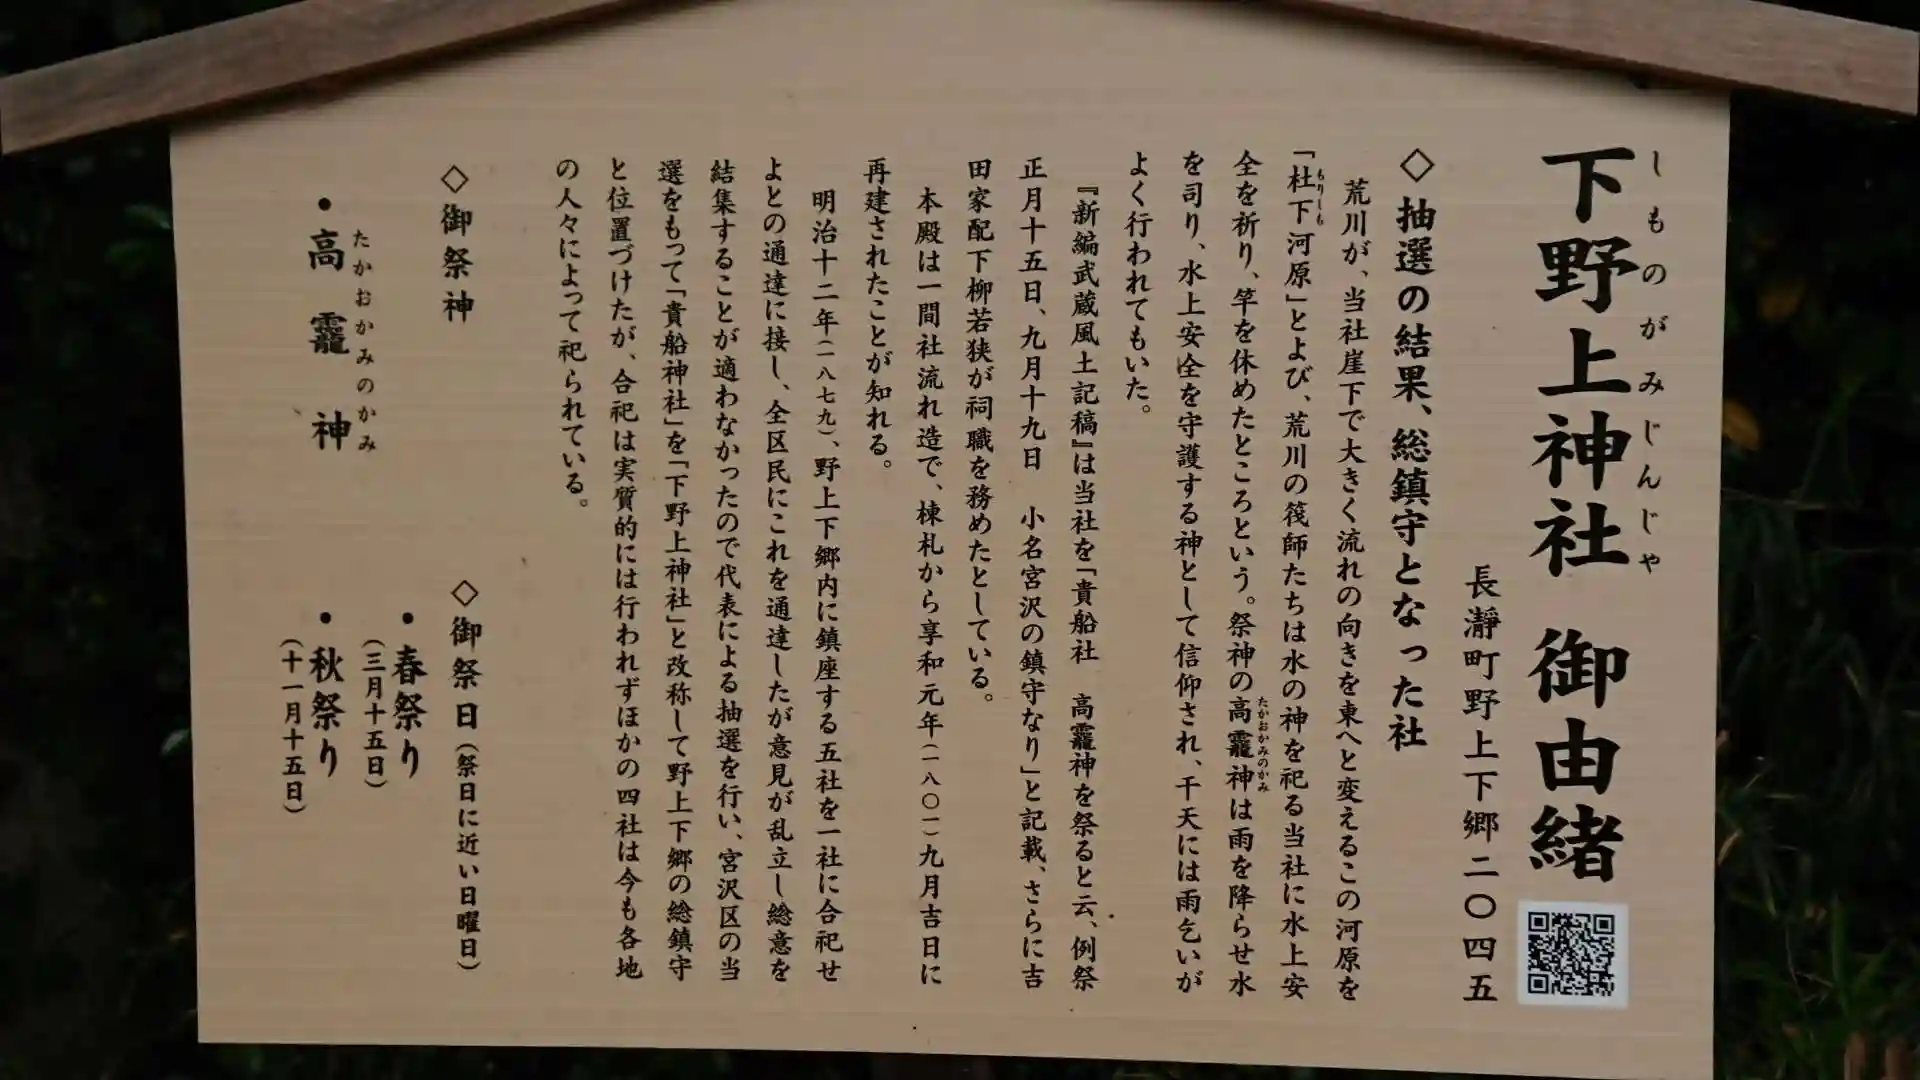 下野上神社 御由緒
しものがみじんじゃ
長瀞町野上下郷二〇四五
◇抽選の結果、総鎮守となった社
荒川が、当社崖下で大きく流れの向きを東へと変えるこの河原を
「杜下河原」とよび、荒川の筏師たちは水の神を祀る当社に水上安
もりしも
全を祈り、竿を休めたところという。祭神の高龗神は雨を降らせ水
たかおかみのかみ
を司り、水上安全を守護する神として信仰され、干天には雨乞いが
よく行われてもいた。
『新編武蔵風土記稿』は当社を「貴船社 高龗神を祭ると云、例祭
正月十五日、九月十九日 小名宮沢の鎮守なり」と記載、さらに吉
田家配下柳若狭が祠職を務めたとしている。
本殿は一間社流れ造で、棟札から享和元年(一八〇一)九月吉日に
再建されたことが知れる。
明治十二年(一八七九)、野上下郷内に鎮座する五社を一社に合祀せ
よとの通達に接し、全区民にこれを通達したが意見が乱立し総意を
結集することが適わなかったので代表による抽選を行い、宮沢区の当
選をもって「貴船神社」を「下野上神社」と改称して野上下郷の総鎮守
と位置づけたが、合祀は実質的には行われずほかの四社は今も各地
の人々によって祀られている。
◇御祭神
• 高龗神
たかおかみのかみ
◇御祭日(祭日に近い日曜日)
• 春祭り
(三月十五日)
• 秋祭り
(十一月十五日)